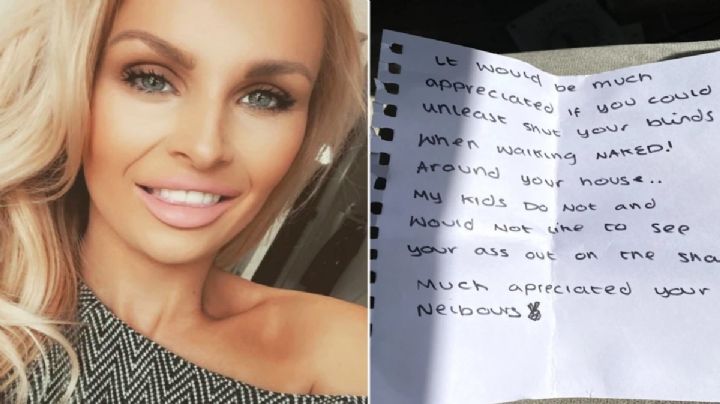 it would be much
appreciated if you could
unleast shut your blinds
when walking NAKED!
Around your house..
My Kids Do Not and
would Not like to see
your ass out on the
Much apreciated your
Neibours